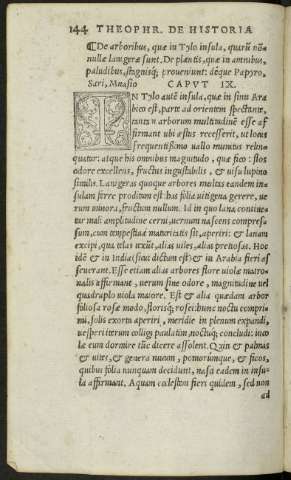 144 THEOPHR. DE HISTORIÆ
De arboribus, quæ in Tylo insula, quarũ nõ-
nullæ lanigeræ sunt. De plantis, quæ in amnibus,
paludibus, stagnisq; proueniunt: déque Papyro,
Sari, Mnasio CAPVT IX.
IN Tylo autẽ insula, quæ in sinu Ara
bico est, parte ad orientem spectante,
tantã arborum multitudinẽ esse af
firmant ubi æstus recesserit, ut locus
frequentissimo uallo munitus relin-
quatur: atque his omnibus magnitudo, quæ fico: flos
odore excellens, fructus ingustabilis, & uisu lupino
similis. Lanigeras quoque arbores multas eandem in-
sulam ferre proditum est has folia uitigena gerere, ue
rum minora, fructum nullum. Id in quo lana contine
tur mali amplitudine cerni, uernum nascens compres-
sum, cum tempestiuã maturitatis sit, aperiri: & lanam
excipi, qua telas texũt, alias uiles, alias preciosas. Hoc
idẽ & in India (sicut dictum est) & in Arabia fieri as
seuerant. Esse etiam alias arbores flore uiolæ matro-
nalis affirmant, uerum sine odore, magnitudine uel
quadruplo uiola maiore. Est & alia quædam arbor
foliosa rosæ modo, floris�; rosei: hunc noctu compri
mi, solis exortu aperiri, meridie in plenum expandi,
uesperi iterum colligi paulatim, noctuq; concludi: inco
læ eum dormire tũc dicere assolent. Quin & palmas
& uites, & genera nucum, pomorumque, & ficos,
quibus folia nunquam decidunt, nasci eadem in insu-
la affirmant. Aquam cœlestem fieri quidem, sed non
ad